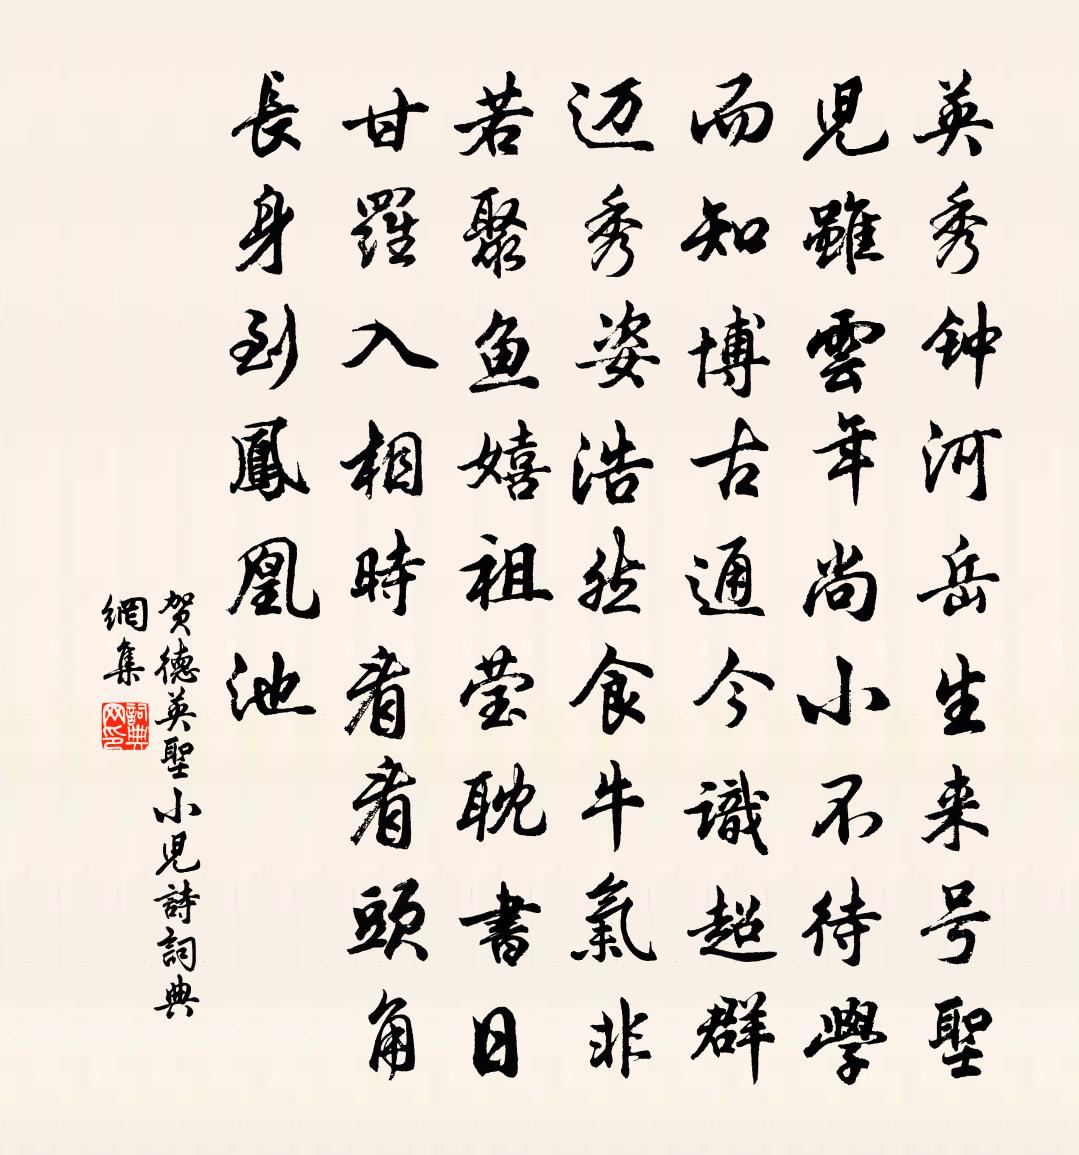 英秀钟河岳生来号聖
児雖雲年尚小不待學
而知博古通今識超群
迈秀姿浩然食牛氣非
若聚鱼嬉祖莹耽書日
甘羅入相時看看頭角
長身到鳳凰池
贺德英聖小児詩詞典
網集
詞典网印